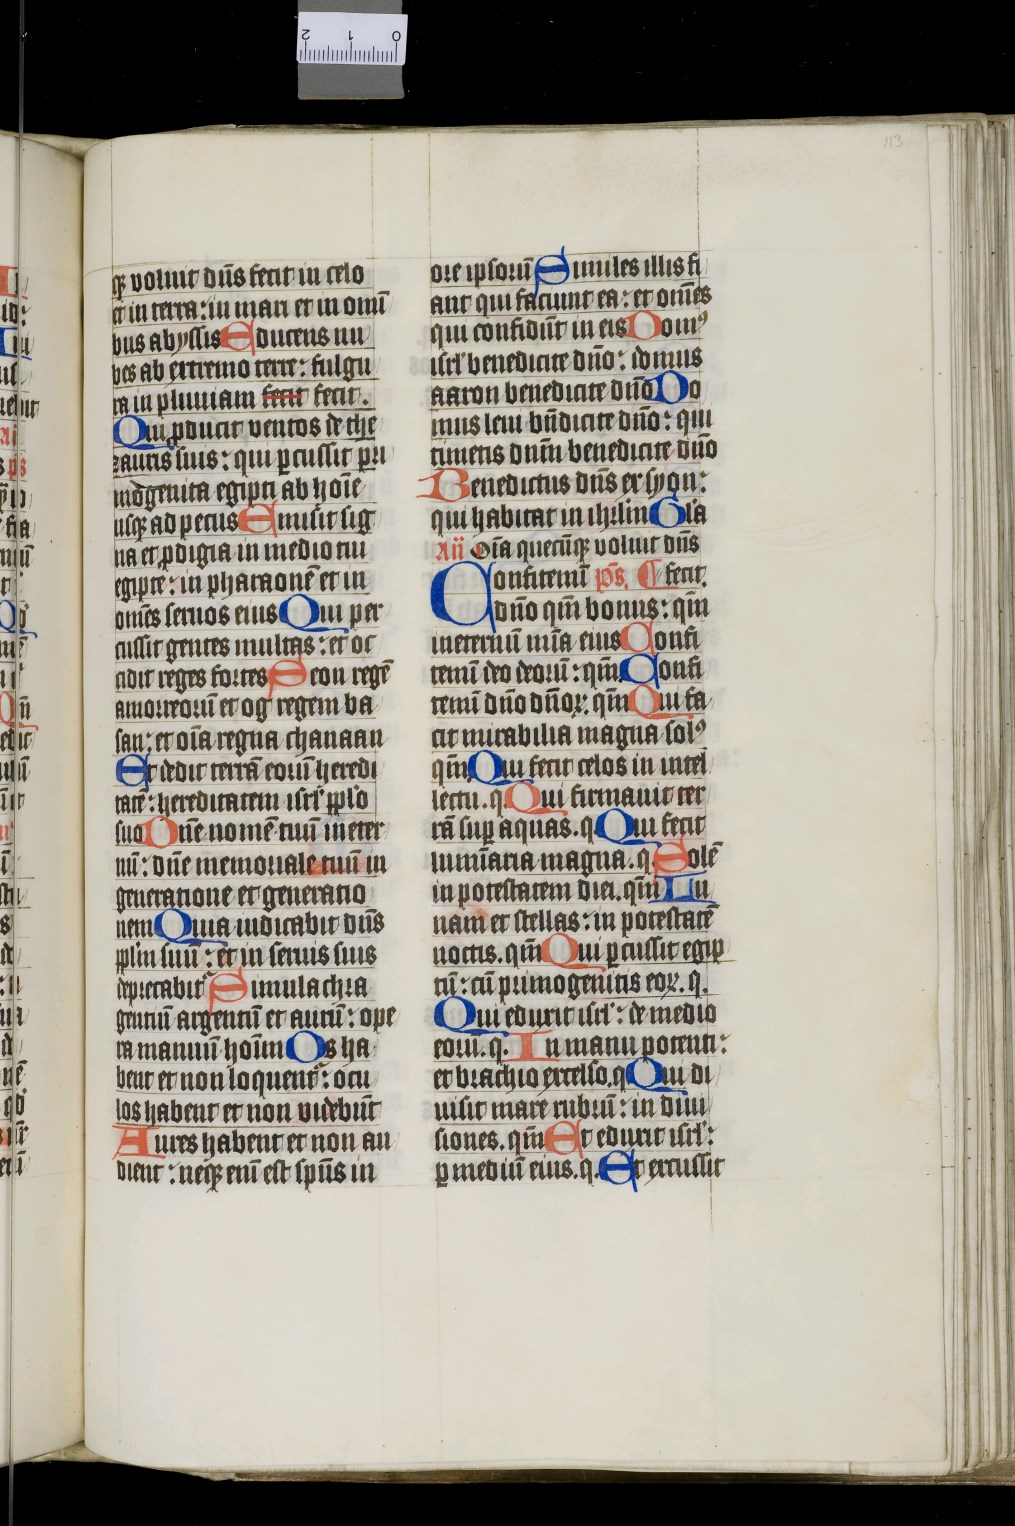 qꝫ voluit dn̄s fecit in celo
et in terra: in mari et in omī
bus abyssis Educens nu
bes ab extremo terre: fulgu
ra in pluuiam fecit fecit.
Qui ꝓducit ventos de the
zauris suis: qui ꝑcussit pri
mogenita egipti ab hoīe
usqꝫ ad pecus Emisit sig
na et ꝓdigia in medio tui
egipte: in pharaonē et in
om̄es seruos eius Qui per
cussit gentes multas: et oc
cidit reges fortes Seon regē
amorreorū et og regem ba
san: et oīa regna chanaan
Et dedit terrā eorū heredi
tatē: hereditatem isrl' pplo
suo Dn̄e nomē tuū ineter
nū: dn̄e memoriale tuū in
generatione et generatio
nem Quia iudicabit dn̄s
pplm suū: et in seruis suis
deprecabit᷑ Simulachra
gentiū argentū et aurū: ope
ra manuū hoīm Os ha
bent et non loquent᷑: ocu
los habent et non videbūt
Aures habent et non au
dient: neqꝫ enī est spūs in
ore ipsorū Similes illis fi
ant qui faciunt ea: et om̄es
qui confidūt in eis Domꝰ
isrl' benedicite dn̄o: domus
aaron benedicite dn̄o Do
mus leui bn̄dicite dn̄o: qui
timetis dnm̄ benedicite dn̄o
Benedictus dn̄s ex syon:
qui habitat in ihrlm̄ Gl'a
Añ Oīa quecūqꝫ voluit dn̄s
Confitemī ps. fecit.
dn̄o qm̄ bonus: qm̄
ineternū mīa eius Confi
temī deo deorū: qm̄. Confi
temī dn̄o dn̄oꝝ. qm̄ Qui fa
cit mirabilia magna solꝰ
qm̄ Qui fecit celos in intel
lectu. q. Qui firmauit ter
rā suꝑ aquas. q. Qui fecit
lumīaria magna. q. Solē
in potestatem diei. qm̄ Lu
nam et stellas: in potestatē
noctis. qm̄ Qui ꝑcussit egip
tū: cū primogenitis eoꝝ. q.
Qui eduxit isrl': de medio
eorū. q. In manu potenti:
et brachio excelso. q Qui di
uisit mare rubrū: in diui
siones. qm̄ Et eduxit isrl':
ꝑ mediū eius. q. Et excussit
113